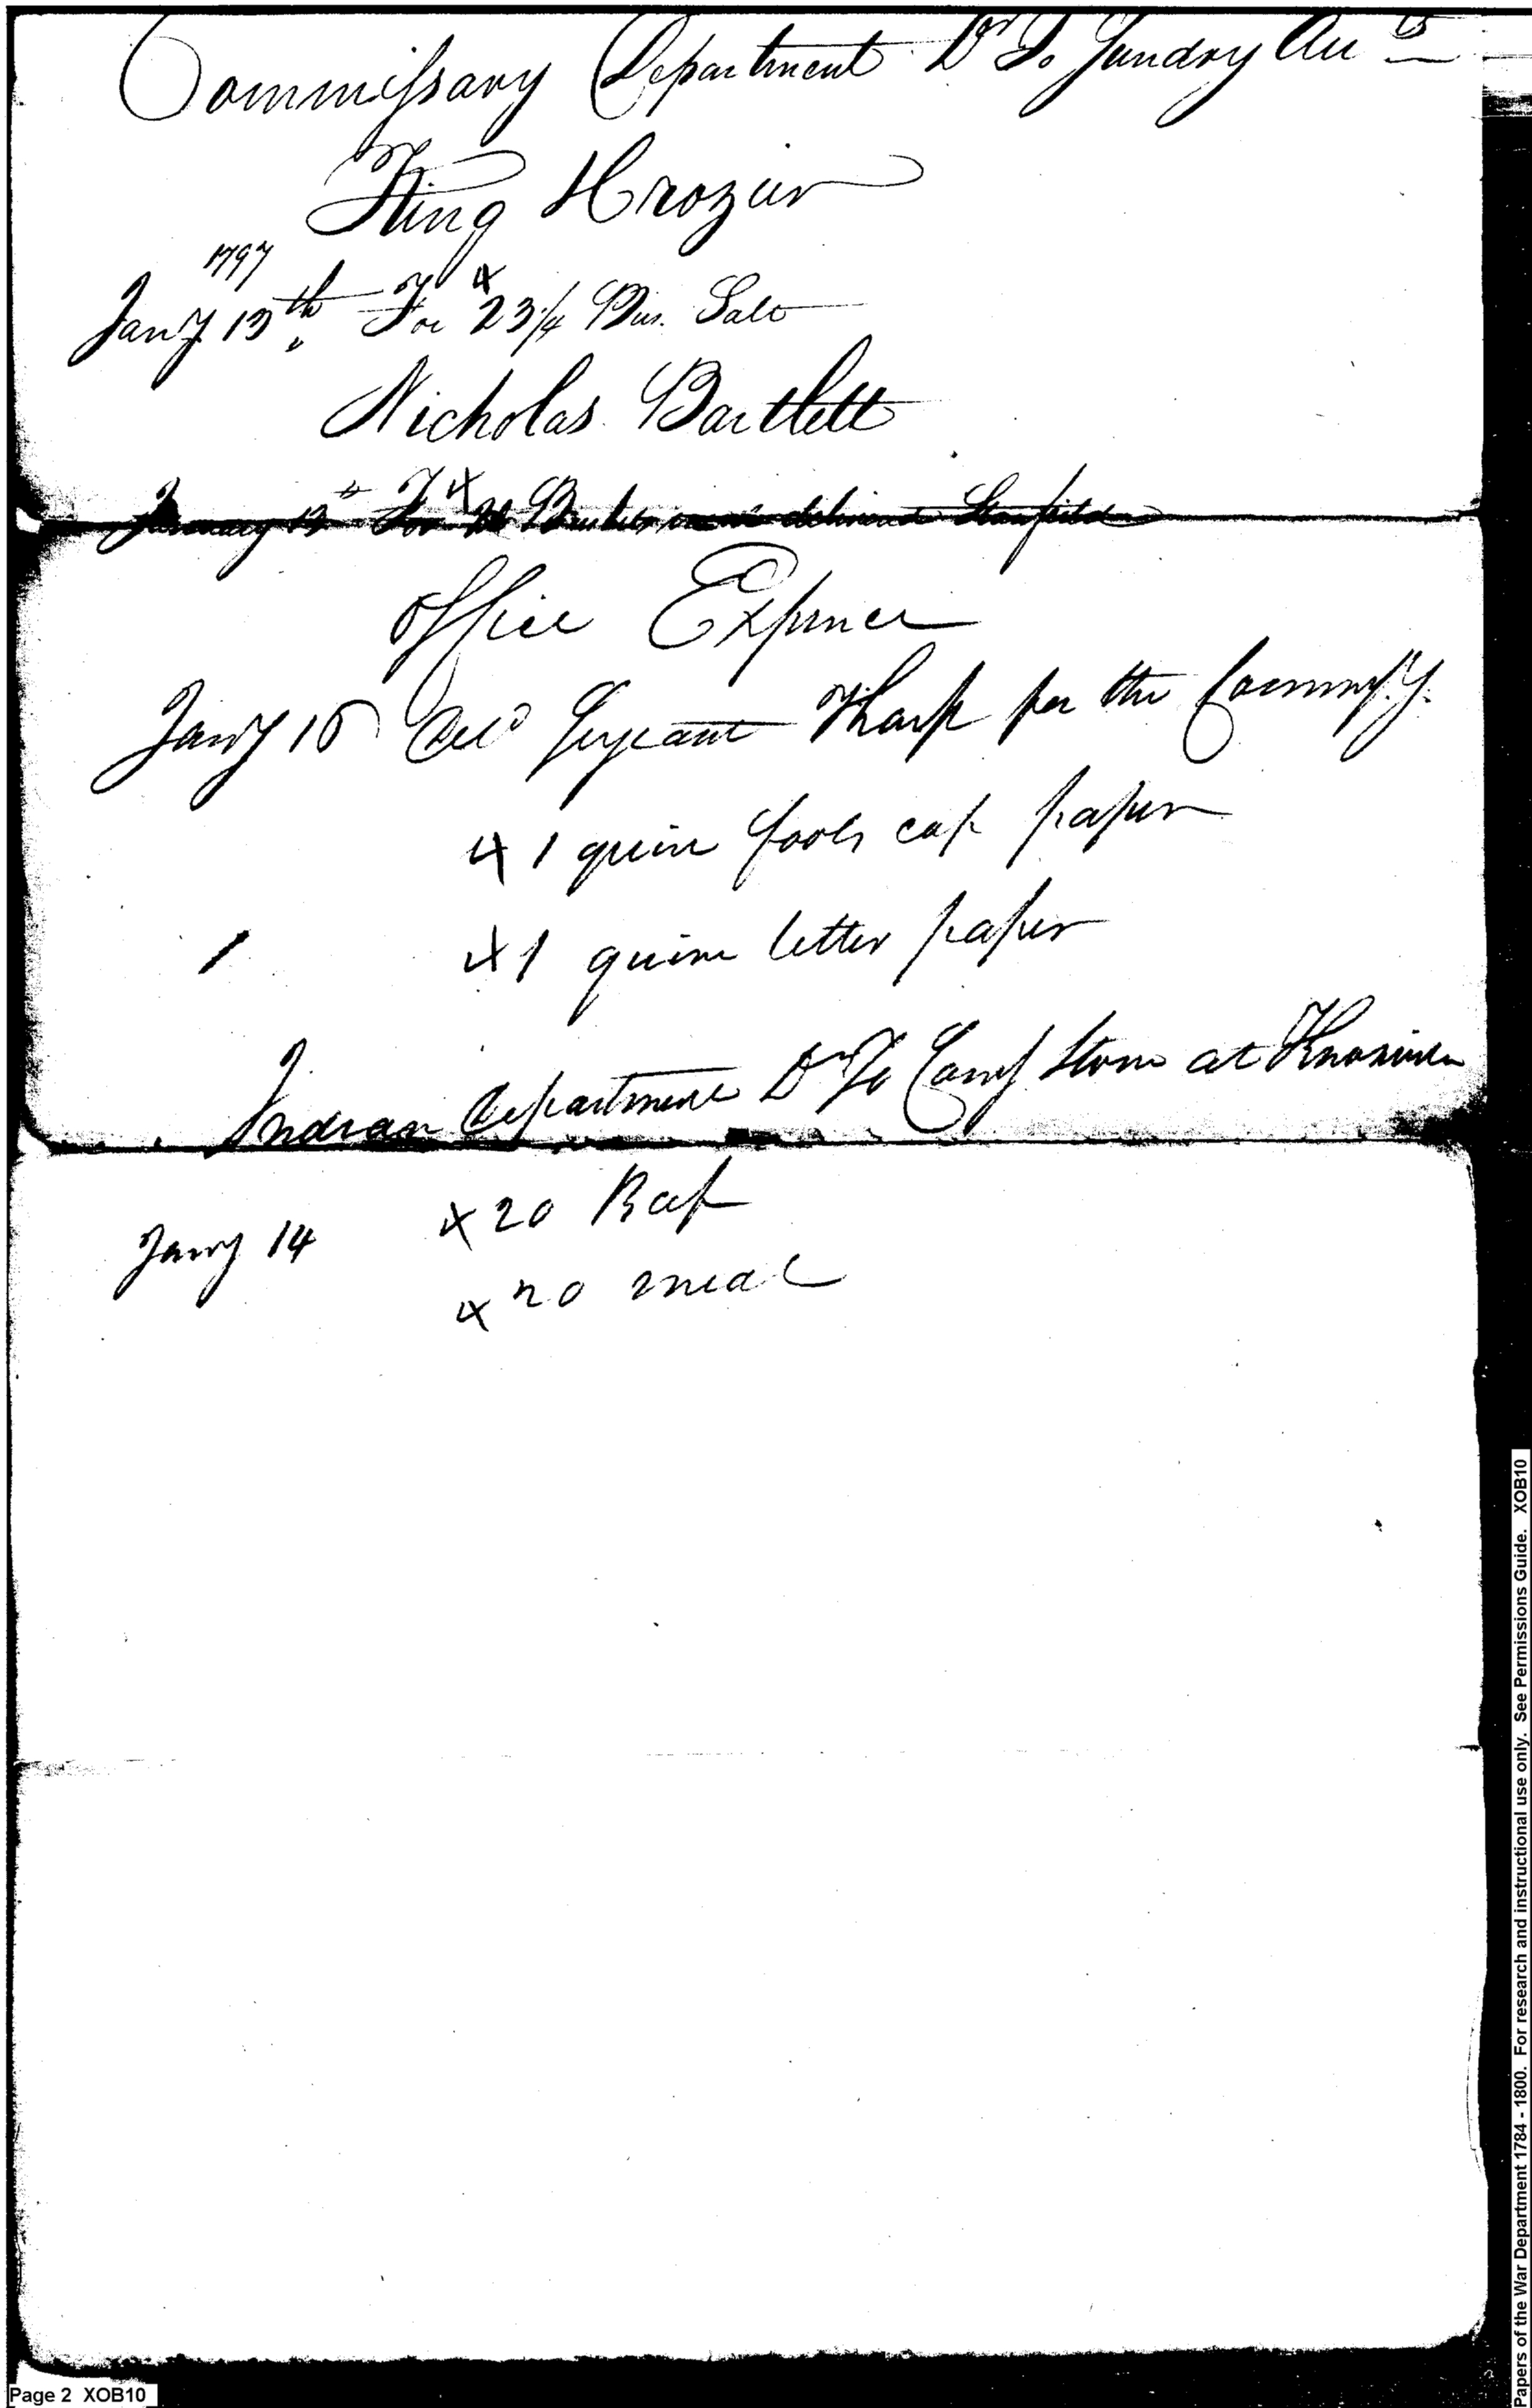 Commissary Department Dr To Sundry Accts
King & Crozier
1797
Jany 13th For x 23 1/4 Bus. Salt
Nicholas Bartlett
January 13th For x Bushels delivered
Office Expence
Jany 15 Deld Serjeant Tharp for the Commissy.
x 1 quire fools cap paper
x 1 quire letter paper
Indian department Dr To Comy Store at Knoxville
x 20 Beef
Jany 14
x 20 meal
Page 2 XOB10
Papers of the War Department 1784 - 1800. For research and instructional use only. See Permissions Guide. XOB10